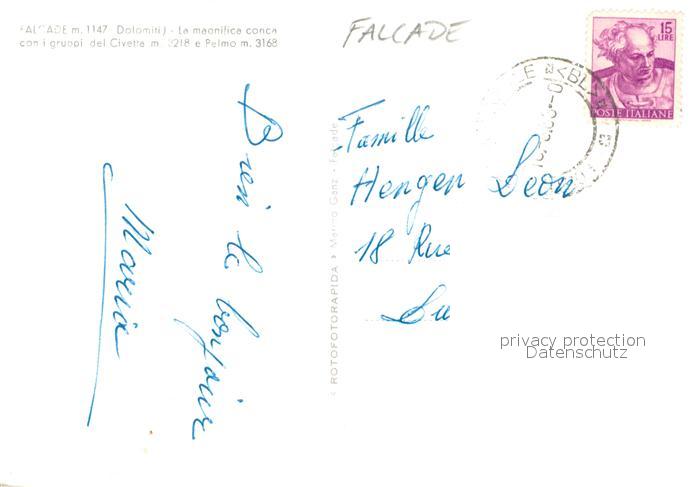 FALCADE m. 1147 Dolomiti) - La magnifica conca
con i gruppi del Civetta m. 3218 e Pelmo m. 3168
FALCADE
15
LIRE
POSTE ITALIANE
Bien le bonjour
Maria
ROTOFOTORAPIDA • Marino Ganz - Falcade
Famille
Hengen Leon
18 Rue
privacy protection
Datenschutz